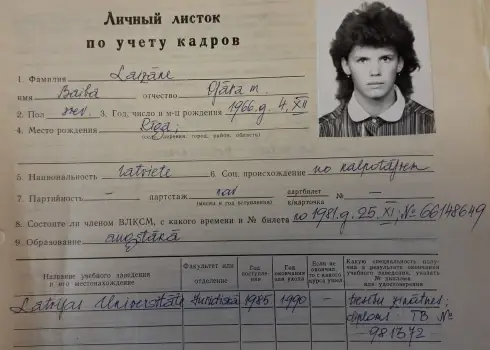 Личный листок
по учету кадров
1. Фамилия
имя Baiba отчество Ojāra m.
2. Пол siev. 3. Год, число и м-ц рождения 1966.g. 4. XII
4. Место рождения Rīga;
5. Национальность latviete 6. Соц. происхождение no kalpotājiem
7. Партийность — партстаж nav партбилет
к/карточка № —
8. Состоите ли членом ВЛКСМ, с какого времени и № билета no 1981.g. 25. XI; № 66148649
9. Образование augstākā
Название учебного заведения и его местонахождение
Факультет или отделение
Год поступле-
Год окончания или ухода
Если не окончил, то с какого курса ушел
Какую специальность получил в результате окончания учебного заведения, указать № диплома или удостоверения
Latvijas Universitāte Juridiskā 1985 1990 — tiesību zinātnes;
diploms TB №
981372 —